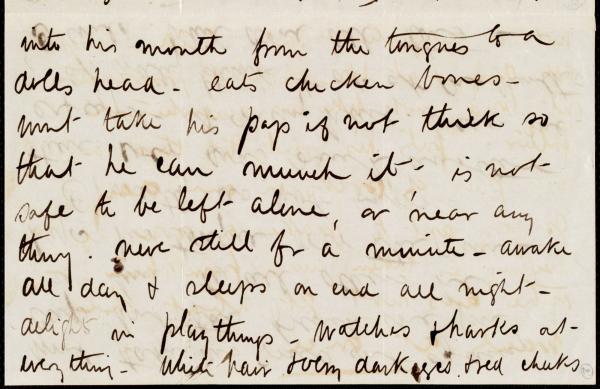 into his mouth from the tongues to a
dolls head - eats chicken bones -
wont take his pap if not thick so
that he can munch it - is not
safe to be left alone, or near any
thing. never still for a minute - awake
all day & sleeps on end all night -
delight in playthings - watches & barks at
everything - white hair & very dark eyes & red cheeks